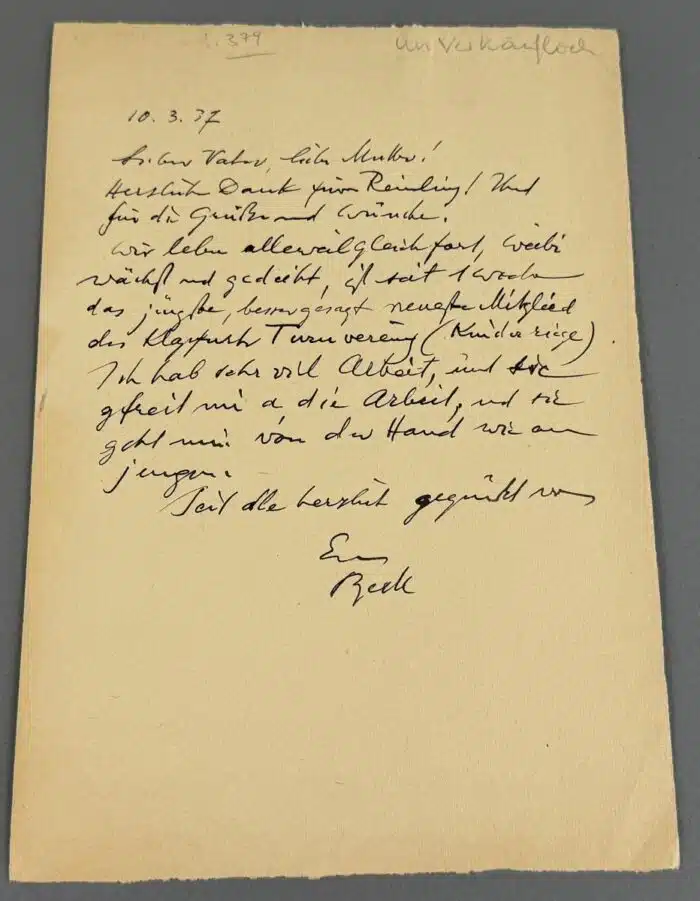 379
unverkäuflich
10. 3. 37
Lieber Vater, liebe Mutter!
Herzlich Dank für Reindling! Und
für die Grüße und Wünsche.
Wir leben alleweil gleich fort,
wächst und gedeiht, ist seit 1 Woche
das jüngste, besser gesagt neueste Mitglied
des Klagenfurter Turnvereins (Kinderriege).
Ich hab sehr viel Arbeit, und sie
gfreit mi a die Arbeit, und sie
geht mir von der Hand wie am
jungen.
Seit alle herzlich gegrüßt von